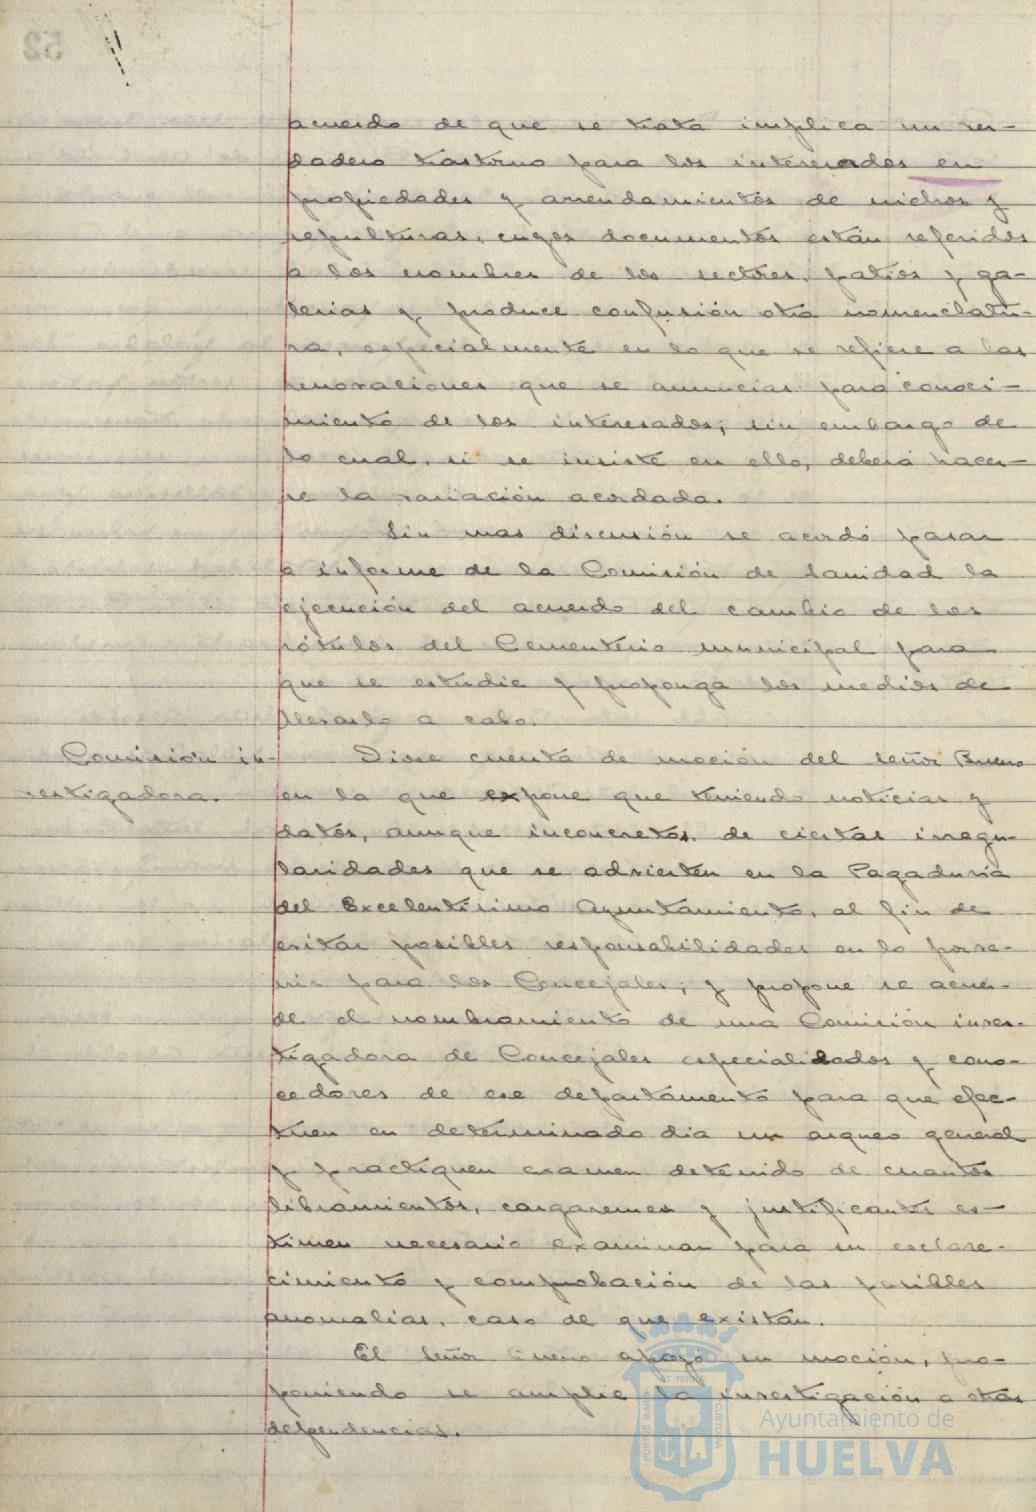 acuerdo de que se trata implica un ver-
dadero trastorno para los interesados en
propiedades y arrendamientos de nichos y
sepulturas, cuyos documentos están referidos
a los nombres de los sectores, patios y ga-
lerias y produce confusión otra nomenclatu-
ra, especialmente en lo que se refiere a las
renovaciones que se anuncias para conoci-
miento de los interesados; sin embargo de
lo cual, si se insiste en ello, deberá hacer-
se la variación acordada.
Sin mas discusión se acordó pasar
a informe de la Comisión de Sanidad la
ejecución del acuerdo del cambio de los
rótulos del Cementerio municipal para
que se estudie y proponga los medios de
llevarlo a cabo.
Comisión in-
vestigadora.
Diose cuenta de moción del señor Bueno
en la que expone que teniendo noticias y
datos, aunque inconcretos, de ciertas irregu-
laridades que se advierten en la Pagaduria
del Excelentísimo Ayuntamiento, al fin de
evitar posibles responsabilidades en lo porve-
nir para los Concejales; y propone se acuer-
de el nombramiento de una Comisión inves-
tigadora de Concejales especializados y cono-
cedores de ese departamento para que efec-
tuen en determinado dia un arqueo general
y practiquen examen detenido de cuantos
libramientos, cargaremes y justificantes es-
timen necesario examinar para su esclare-
cimiento y comprobación de las posibles
anomalias, caso de que existan.
El señor Bueno apoyó su moción, pro-
poniendo se amplie la investigación a otras
dependencias.
52
PORTUS MARIS ET TERRE CUSTODIA
Ayuntamiento de
HUELVA